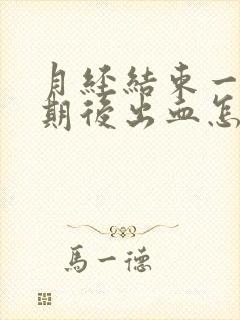 月經結束一
期後出血怎
馬一德